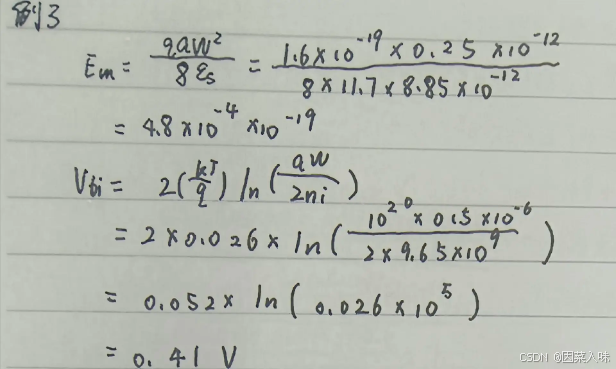 例3
Em = qaw² / 8εs = 1.6×10⁻¹⁹ × 0.25 ×10⁻¹² / 8×11.7×8.85×10⁻¹²
= 4.8×10⁻⁴ ×10⁻¹⁹
Vbi = 2(kT/q) ln(aw/2ni)
= 2×0.026× ln(10²⁰×0.5×10⁻⁶ / 2×9.65×10⁹)
= 0.052× ln(0.026×10⁵)
= 0.41 V
CSDN @因菜入味